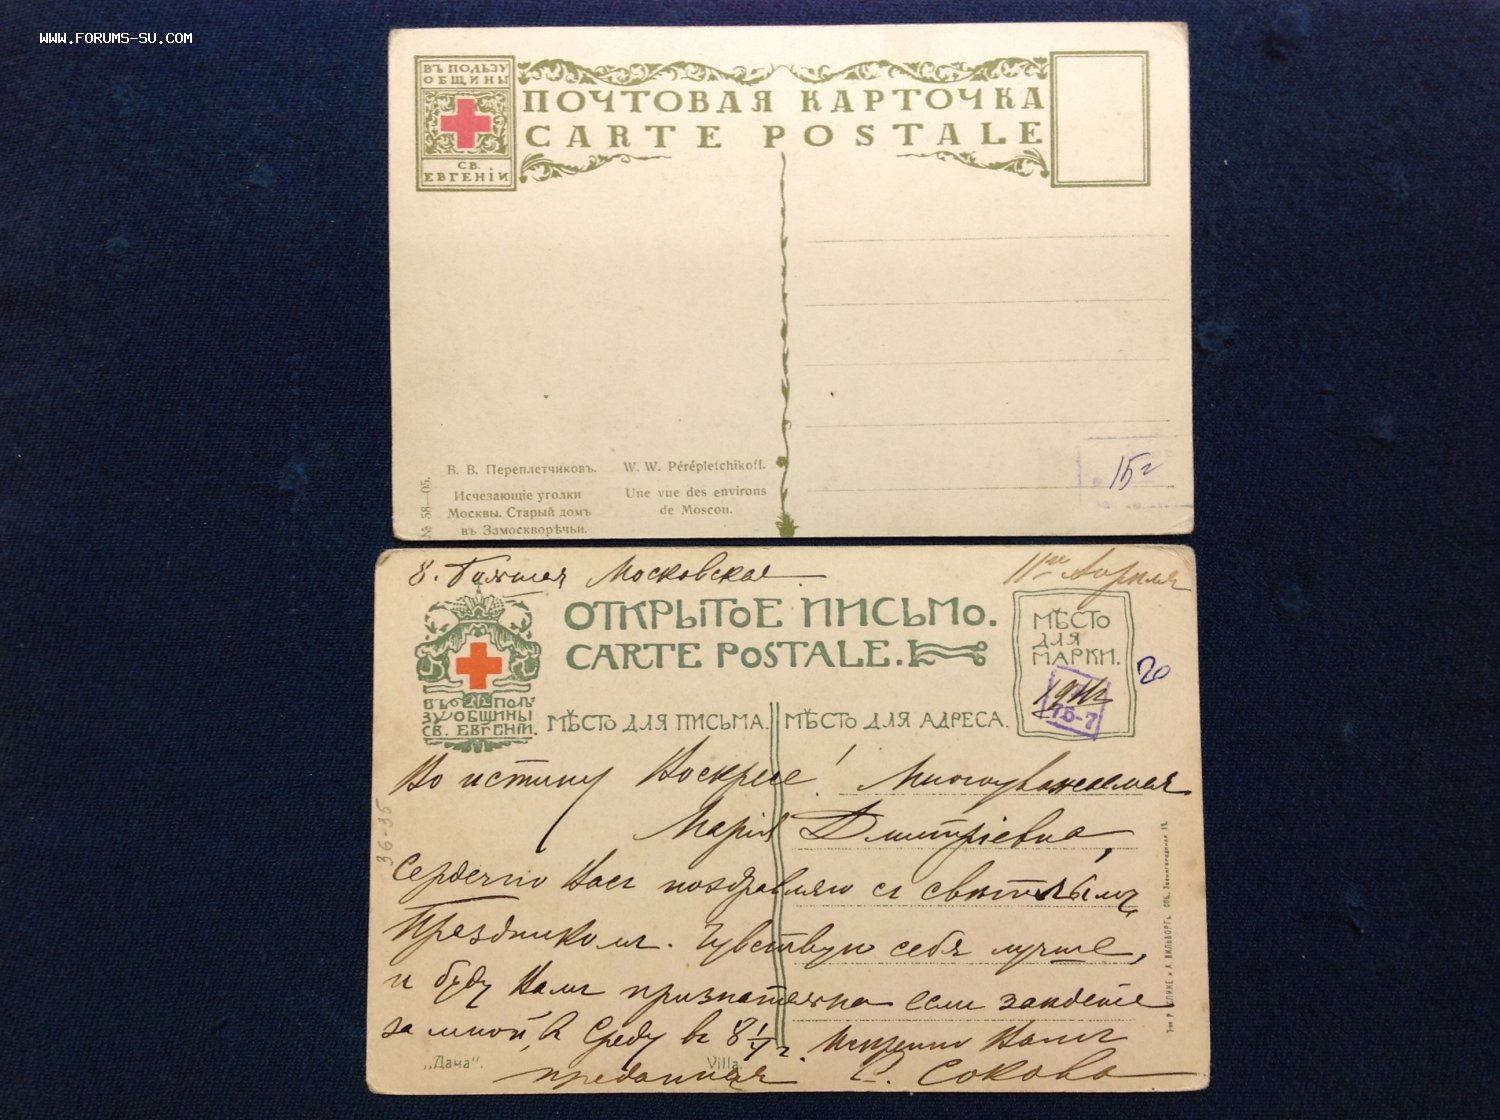 WWW.FORUMS-SU.COM
ВЪ ПОЛЬЗУ
ОБЩИНЫ
СВ.
ЕВГЕНІИ
ПОЧТОВАЯ КАРТОЧКА
CARTE POSTALE
В. В. Переплетчиковъ.
Исчезающіе уголки
Москвы. Старый домъ
въ Замоскворѣчьи.
W. W. Pérépletchikoff.
Une vue des environs
de Moscou.
№ 58—05.
15 г
8. Московская
11го Апреля
ОТКРЫТОЕ ПИСЬМО.
CARTE POSTALE.
МѢСТО
ДЛЯ
МАРКИ.
20
1911г
15-7
ВЪ ПОЛЬ
ЗУ ОБЩИНЫ
СВ. ЕВГЕНІИ.
МѢСТО ДЛЯ ПИСЬМА.
МѢСТО ДЛЯ АДРЕСА.
Во истину Воскресе! Многоуважаемая
Марія Дмитріевна,
Сердечно Васъ поздравляю съ свѣтлымъ
Праздникомъ. Чувствую себя лучше,
и буду Вамъ признательна если заѣдете
за мной, въ Среду въ 8 ½ г. Искренно Вамъ
преданная Е. Сокова
36-35
„Дача".
Villa.
Р. ГОЛИКЕ и А. ВИЛЬБОРГЪ. СПБ. Звенигородская 11.